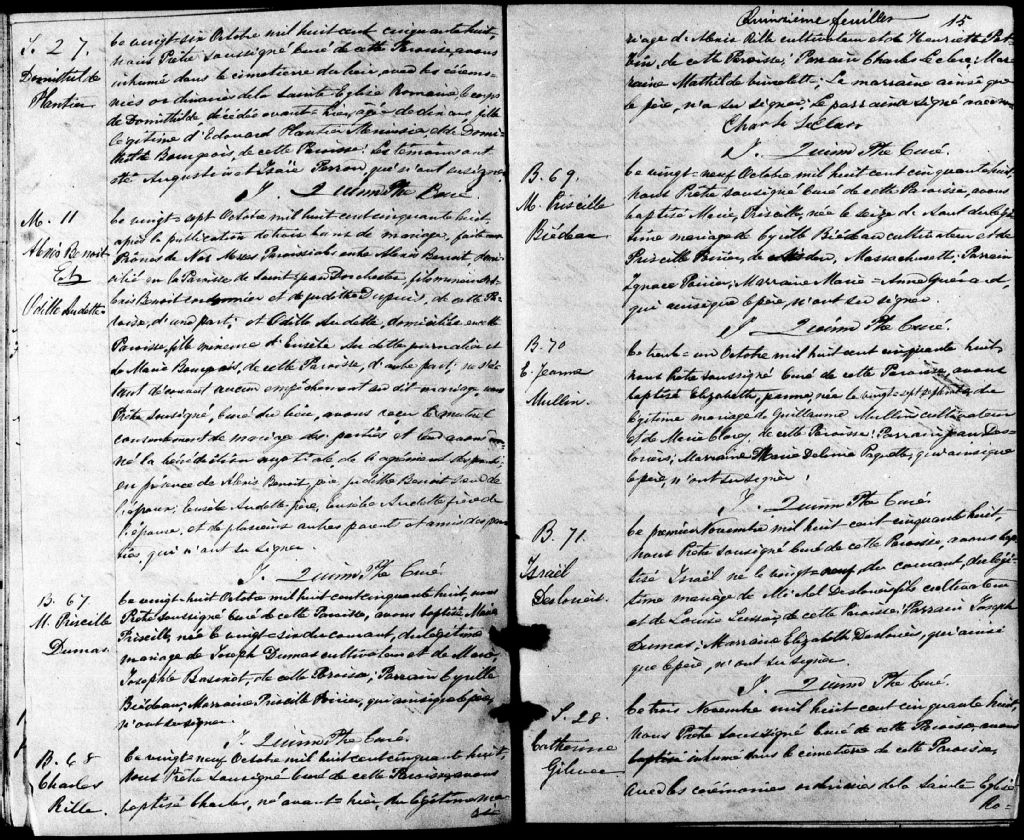 S. 27.
Domithilde
Plantier
Le vingt-six Octobre mil huit cent cinquante huit,
nous Prêtre soussigné Curé de cette Paroisse, avons
inhumé dans le cimetière du lieu, avec les cérémo-
nies ordinaires de la Sainte Eglise Romaine, le corps
de Domithilde, décédée avant-hier, âgée de dix ans, fille
légitime d'Edouard Plantier Menuisier, et de Domi-
thilde Bourgeois, de cette Paroisse. Les témoins ont
été Augustin et Isaïe Perron, qui n'ont su signer.
J. Quinn Ptre Curé.
M. 11
Alexis Benoit
Et
Odille Audette
Le vingt-sept Octobre mil huit cent cinquante huit,
après la publication de trois bans de mariage, faite aux
Prônes de Nos Messes Paroissiales entre Alexis Benoit domi-
cilié en la Paroisse de Saint-Jean Dorchester, fils mineur de
Benoit cordonnier et de Judith Dupuis, de cette Pa-
roisse, d'une part; et Odille Audette, domiciliée en cette
Paroisse, fille mineure d'Eusèbe Audette journalier et
de Marie Bourgeois, de cette Paroisse, d'autre part; ne s'é-
tant découvert aucun empêchement au dit mariage, nous
Prêtre soussigné, Curé du lieu, avons reçu le mutuel
consentement de mariage des parties et leur avons don-
né la bénédiction nuptiale, de l'agrément des parents
en présence de Alexis Benoit, Judith Benoit soeur de
l'époux; Eusèbe Audette père, Eusèbe Audette frère de
l'épouse, et de plusieurs autres parents et amis des par-
ties, qui n'ont su signer.
J. Quinn Ptre Curé
B. 67
M. Priscille
Dumas
Le vingt-huit Octobre mil huit cent cinquante huit, nous
Prêtre soussigné Curé de cette Paroisse, avons baptisé Marie
Priscille, née le vingt-six du courant, du légitime
mariage de Joseph Dumas cultivateur et de Marie
Josephte Basinet, de cette Paroisse; Parrain Cyrille
Biédeau; Marraine, Priscille Poirier, qui ainsi que le père,
n'ont su signer.
J. Quinn Ptre Curé.
B. 68
Charles
Rille.
Le vingt-neuf Octobre mil huit cent cinquante huit,
nous Prêtre soussigné Curé de cette Paroisse, avons
baptisé Charles, né avant-hier, du légitime ma-
Quinzième feuillet 15
riage d'Alexis Rille cultivateur et de Henriette
de cette Paroisse; Parrain Charles Leclerc; Mar-
raine Mathilde; La marraine ainsi que
le père, n'a su signer; Le parrain a signé avec nous
Charles Leclerc
J. Quinn Ptre Curé.
B. 69.
M. Priscille
Biédeau
Le vingt-neuf Octobre mil huit cent cinquante huit,
nous Prêtre soussigné Curé de cette Paroisse, avons
baptisé Marie, Priscille, née le seize d'Août du légi-
time mariage de Cyrille Biédeau cultivateur et de
Priscille Poirier, de Massachusetts; Parrain
Ignace Poirier; Marraine Marie-Anne Guérard,
qui ainsi que le père, n'ont su signer.
J. Quinn Ptre Curé.
B. 70
E. Jeanne
Mullin.
Le trente-un Octobre mil huit cent cinquante huit,
nous Prêtre soussigné Curé de cette Paroisse, avons
baptisé Elizabeth, Jeanne, née le vingt-sept septembre, du
légitime mariage de Guillaume Mullin cultivateur
et de Marie Clarey, de cette Paroisse; Parrain Jean Des-
loriers; Marraine Marie Delima Paquette, qui ainsi que
le père, n'ont su signer.
J. Quinn Ptre Curé.
B. 71.
Israël
Desloriers.
Le premier Novembre mil huit cent cinquante huit,
nous Prêtre soussigné Curé de cette Paroisse, avons bap-
tisé Israël né le vingt-neuf du courant, du légi-
time mariage de Michel Desloriers fils cultivateur
et de Louise, de cette Paroisse; Parrain Joseph
Dumas; Marraine Elizabeth Desloriers, qui ainsi
que le père, n'ont su signer.
J. Quinn Ptre Curé.
S. 28.
Catherine
Le trois Novembre mil huit cent cinquante huit,
nous Prêtre soussigné Curé de cette Paroisse, avons
baptisé inhumé dans le cimetière de cette Paroisse,
avec les cérémonies ordinaires de la Sainte Eglise
Ro-